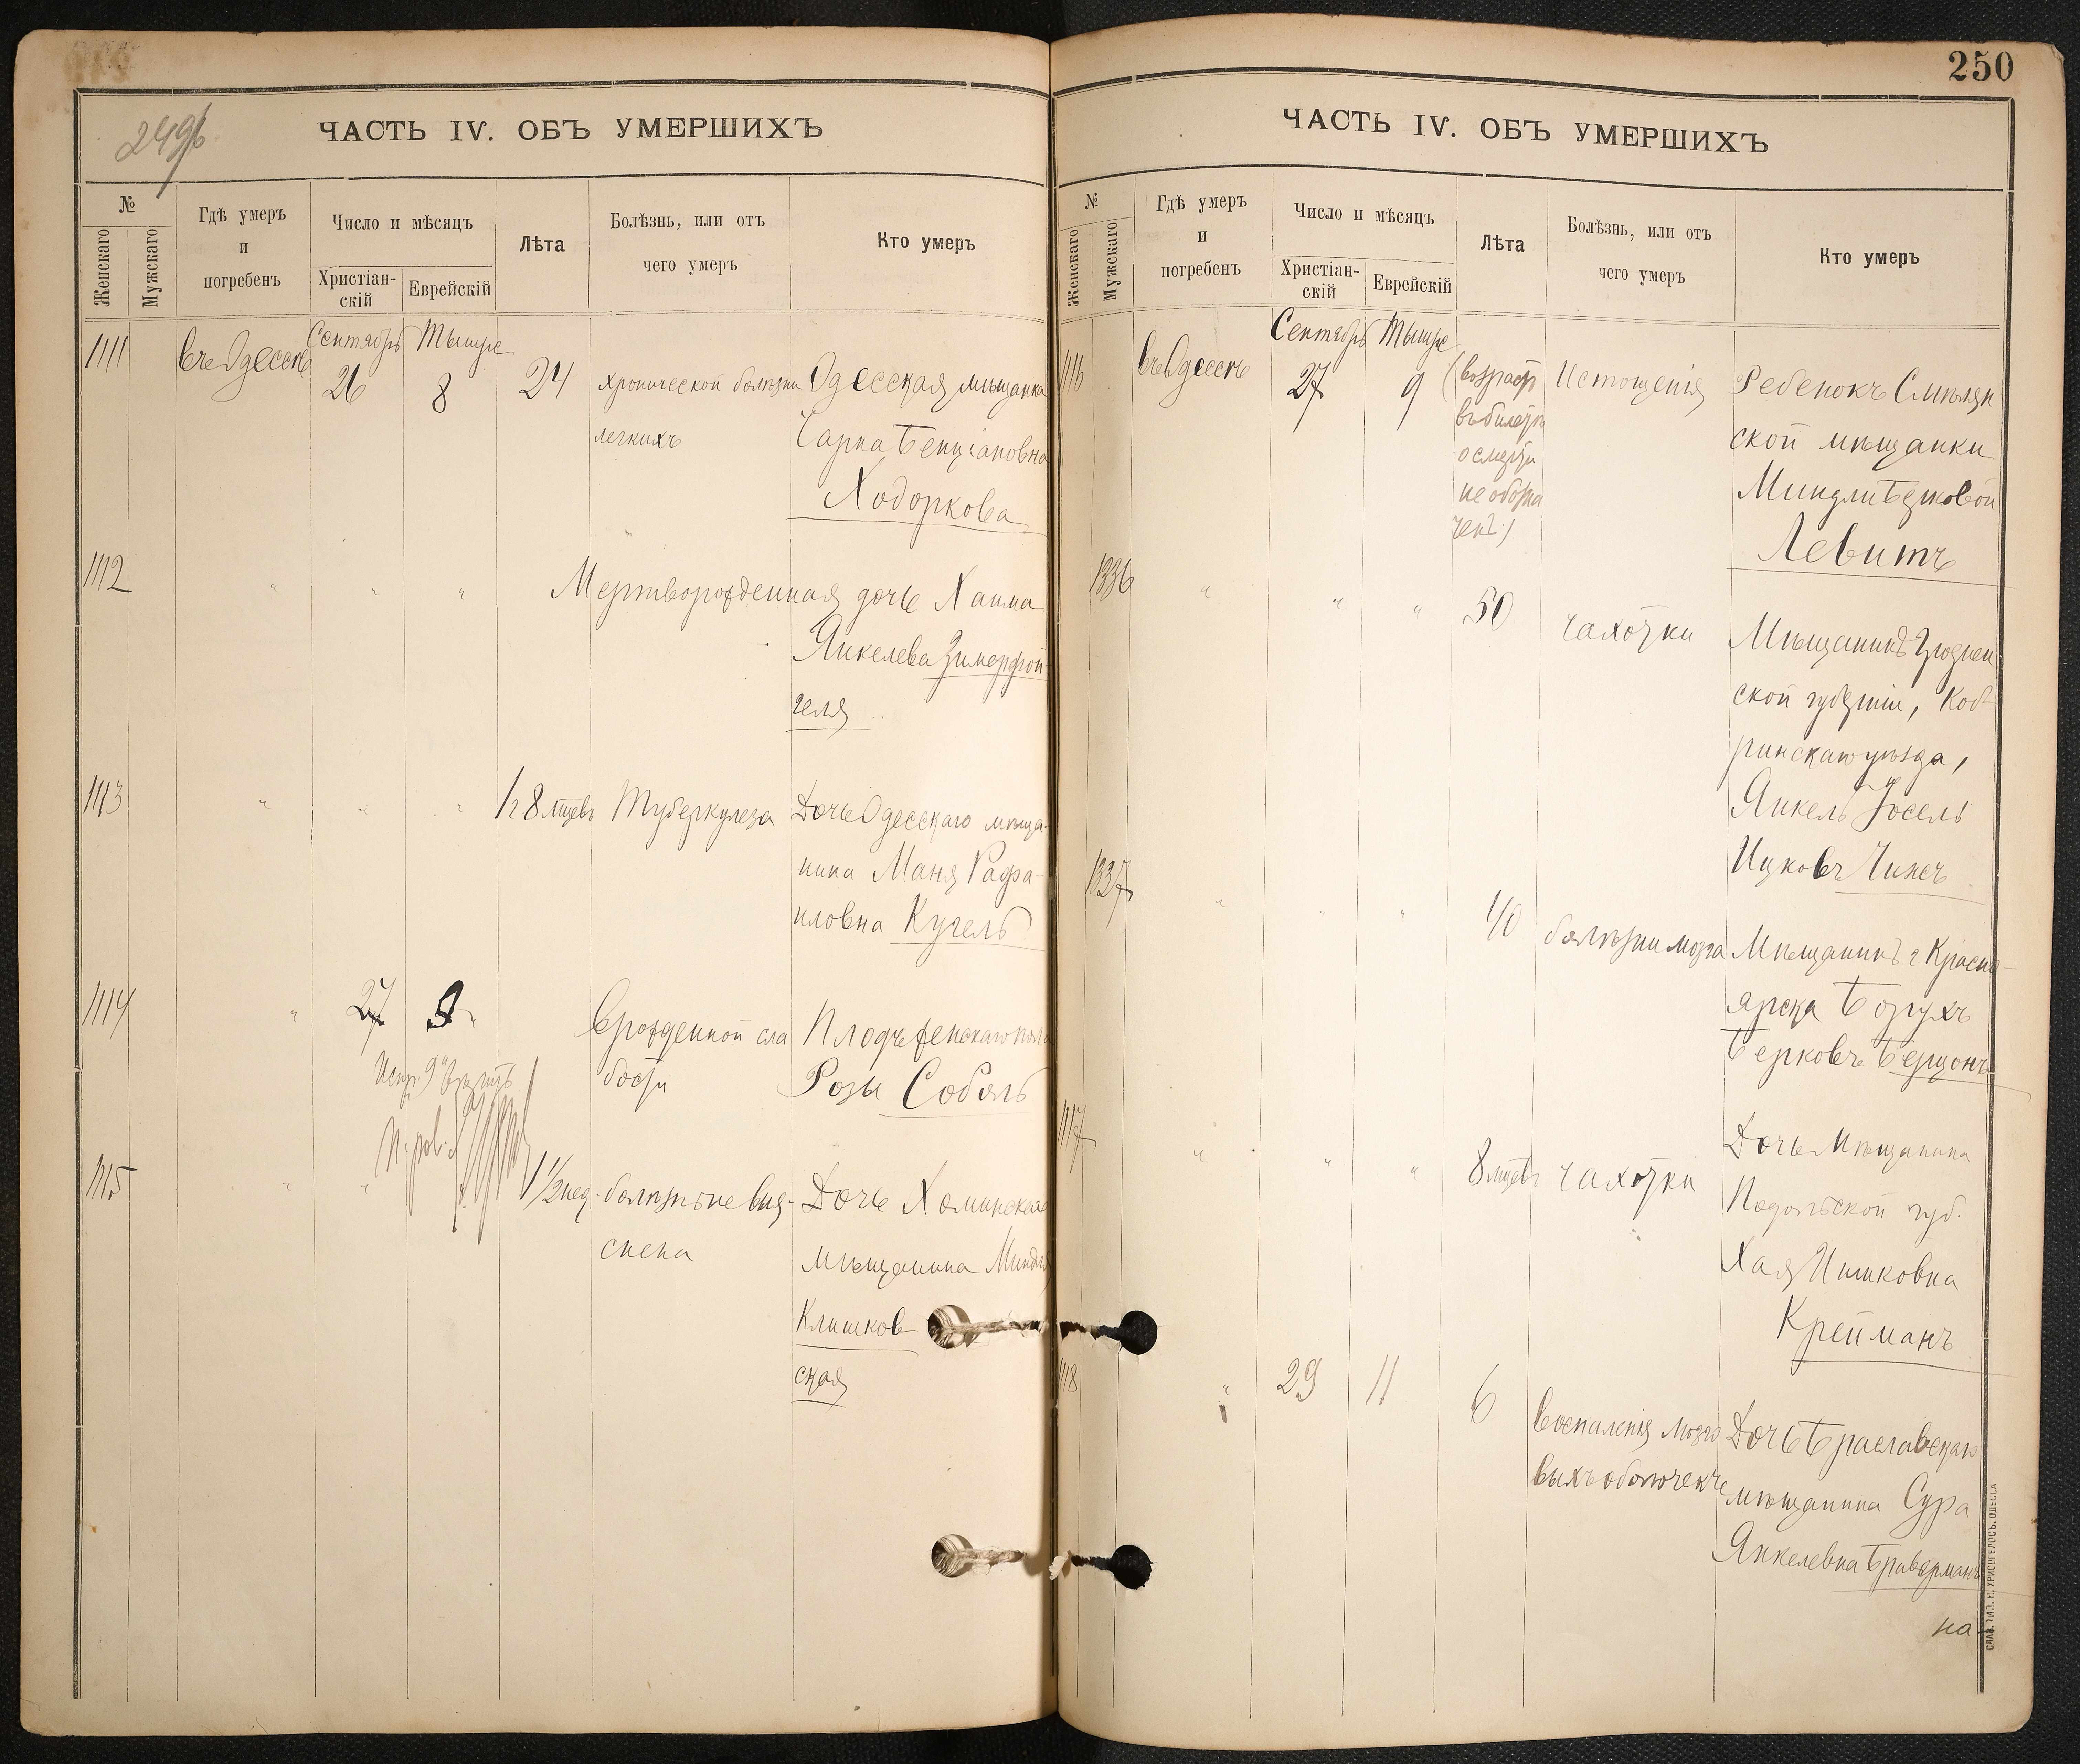 249б
ЧАСТЬ IV. ОБЪ УМЕРШИХЪ
№
Женскаго
Мужскаго
Гдѣ умеръ
и
погребенъ
Число и мѣсяцъ
Христіан-
скій
Еврейскій
Лѣта
Болѣзнь, или отъ
чего умеръ
Кто умеръ
1111
въ Одессѣ
Сентябрь
26
Тышре
8
24
хронической болѣзни
легкихъ
Одесская мѣщанка
Чарна Бенціановна
Ходоркова
1112
" " "
Мертворожденная дочь Хаима
Янкелева
геля
1113
" " "
1 г 8 мцевъ
Туберкулеза
Дочь Одесскаго мѣща-
нина Маня Рафа-
иловна Кугель
1114
"
27
9
врожденной сла
бости
Плодъ женскаго пола
Розы Соболь
Испр. "9" вѣрить
1115
" "
1 1/2 нед.
болѣзнь не выя-
снена
Дочь
мѣщанина
Клишков
ская
250
ЧАСТЬ IV. ОБЪ УМЕРШИХЪ
№
Женскаго
Мужскаго
Гдѣ умеръ
и
погребенъ
Число и мѣсяцъ
Христіан-
скій
Еврейскій
Лѣта
Болѣзнь, или отъ
чего умеръ
Кто умеръ
1116
въ Одессѣ
Сентябрь
27
Тышре
9
(возрастъ
въ билетѣ
о смерти
не обозна
ченъ)
Истощенія
Ребенокъ Смѣлян
ской мѣщанки
Миндли Берковой
Левитъ
1336
" " "
50
чахотки
Мѣщанинъ Гроднен
ской губерніи, Коб-
ринскаго уѣзда,
Янкель Іосель
Ицковъ Чижъ
1337
" " "
40
болѣзни мозга
Мѣщанинъ г Красно-
ярска Борухъ
Берковъ Берцонъ
1117
" " "
8 мцевъ
чахотки
Дочь Мѣщанина
Подольской губ.
Хая Ицковна
Крейманъ
1118
"
29
11
6
воспаленія мозго
выхъ оболочекъ
Дочь Браславскаго
мѣщанина Сура
Янкелевна Браверманъ
на-